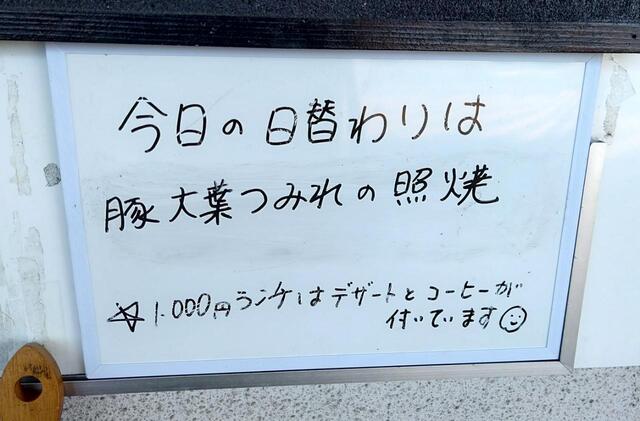 今日の日替わりは
豚大葉つみれの照焼
☆1.000円ランチはデザートとコーヒーが
付いています☺